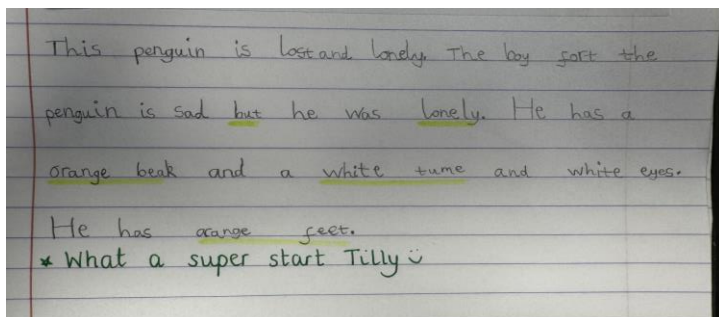 This penguin is lost and lonely. The boy fort the
penguin is sad but he was lonely. He has a
orange beak and a white tume and white eyes.
He has orange feet.
* What a super start Tilly ü